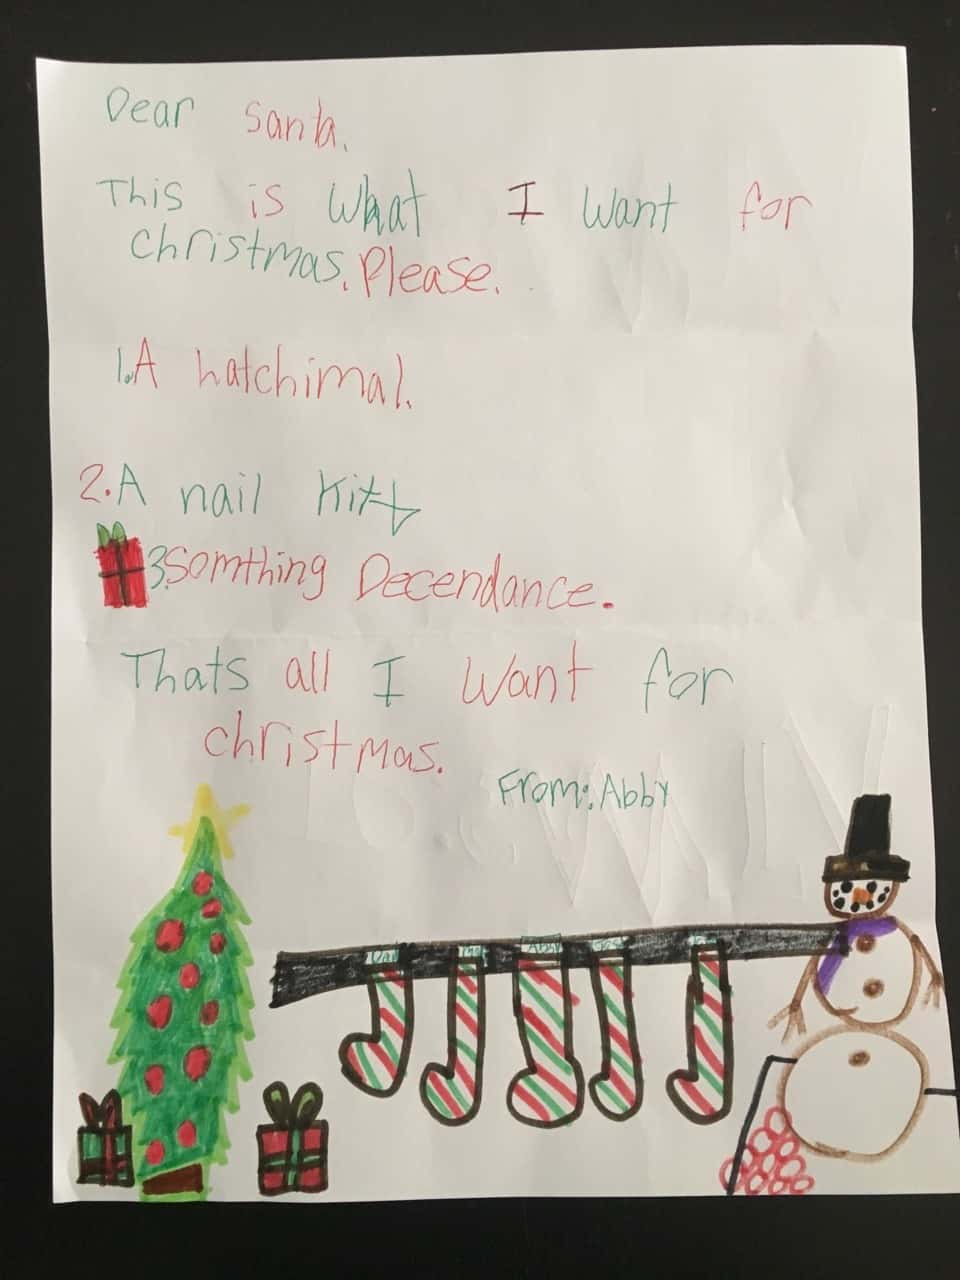 Dear Santa.
This is What I Want for
christmas. Please.
1.A hatchimal.
2.A nail kitt
3.Somthing Decendance.
Thats all I Want for
christmas.
From: Abby
Abby